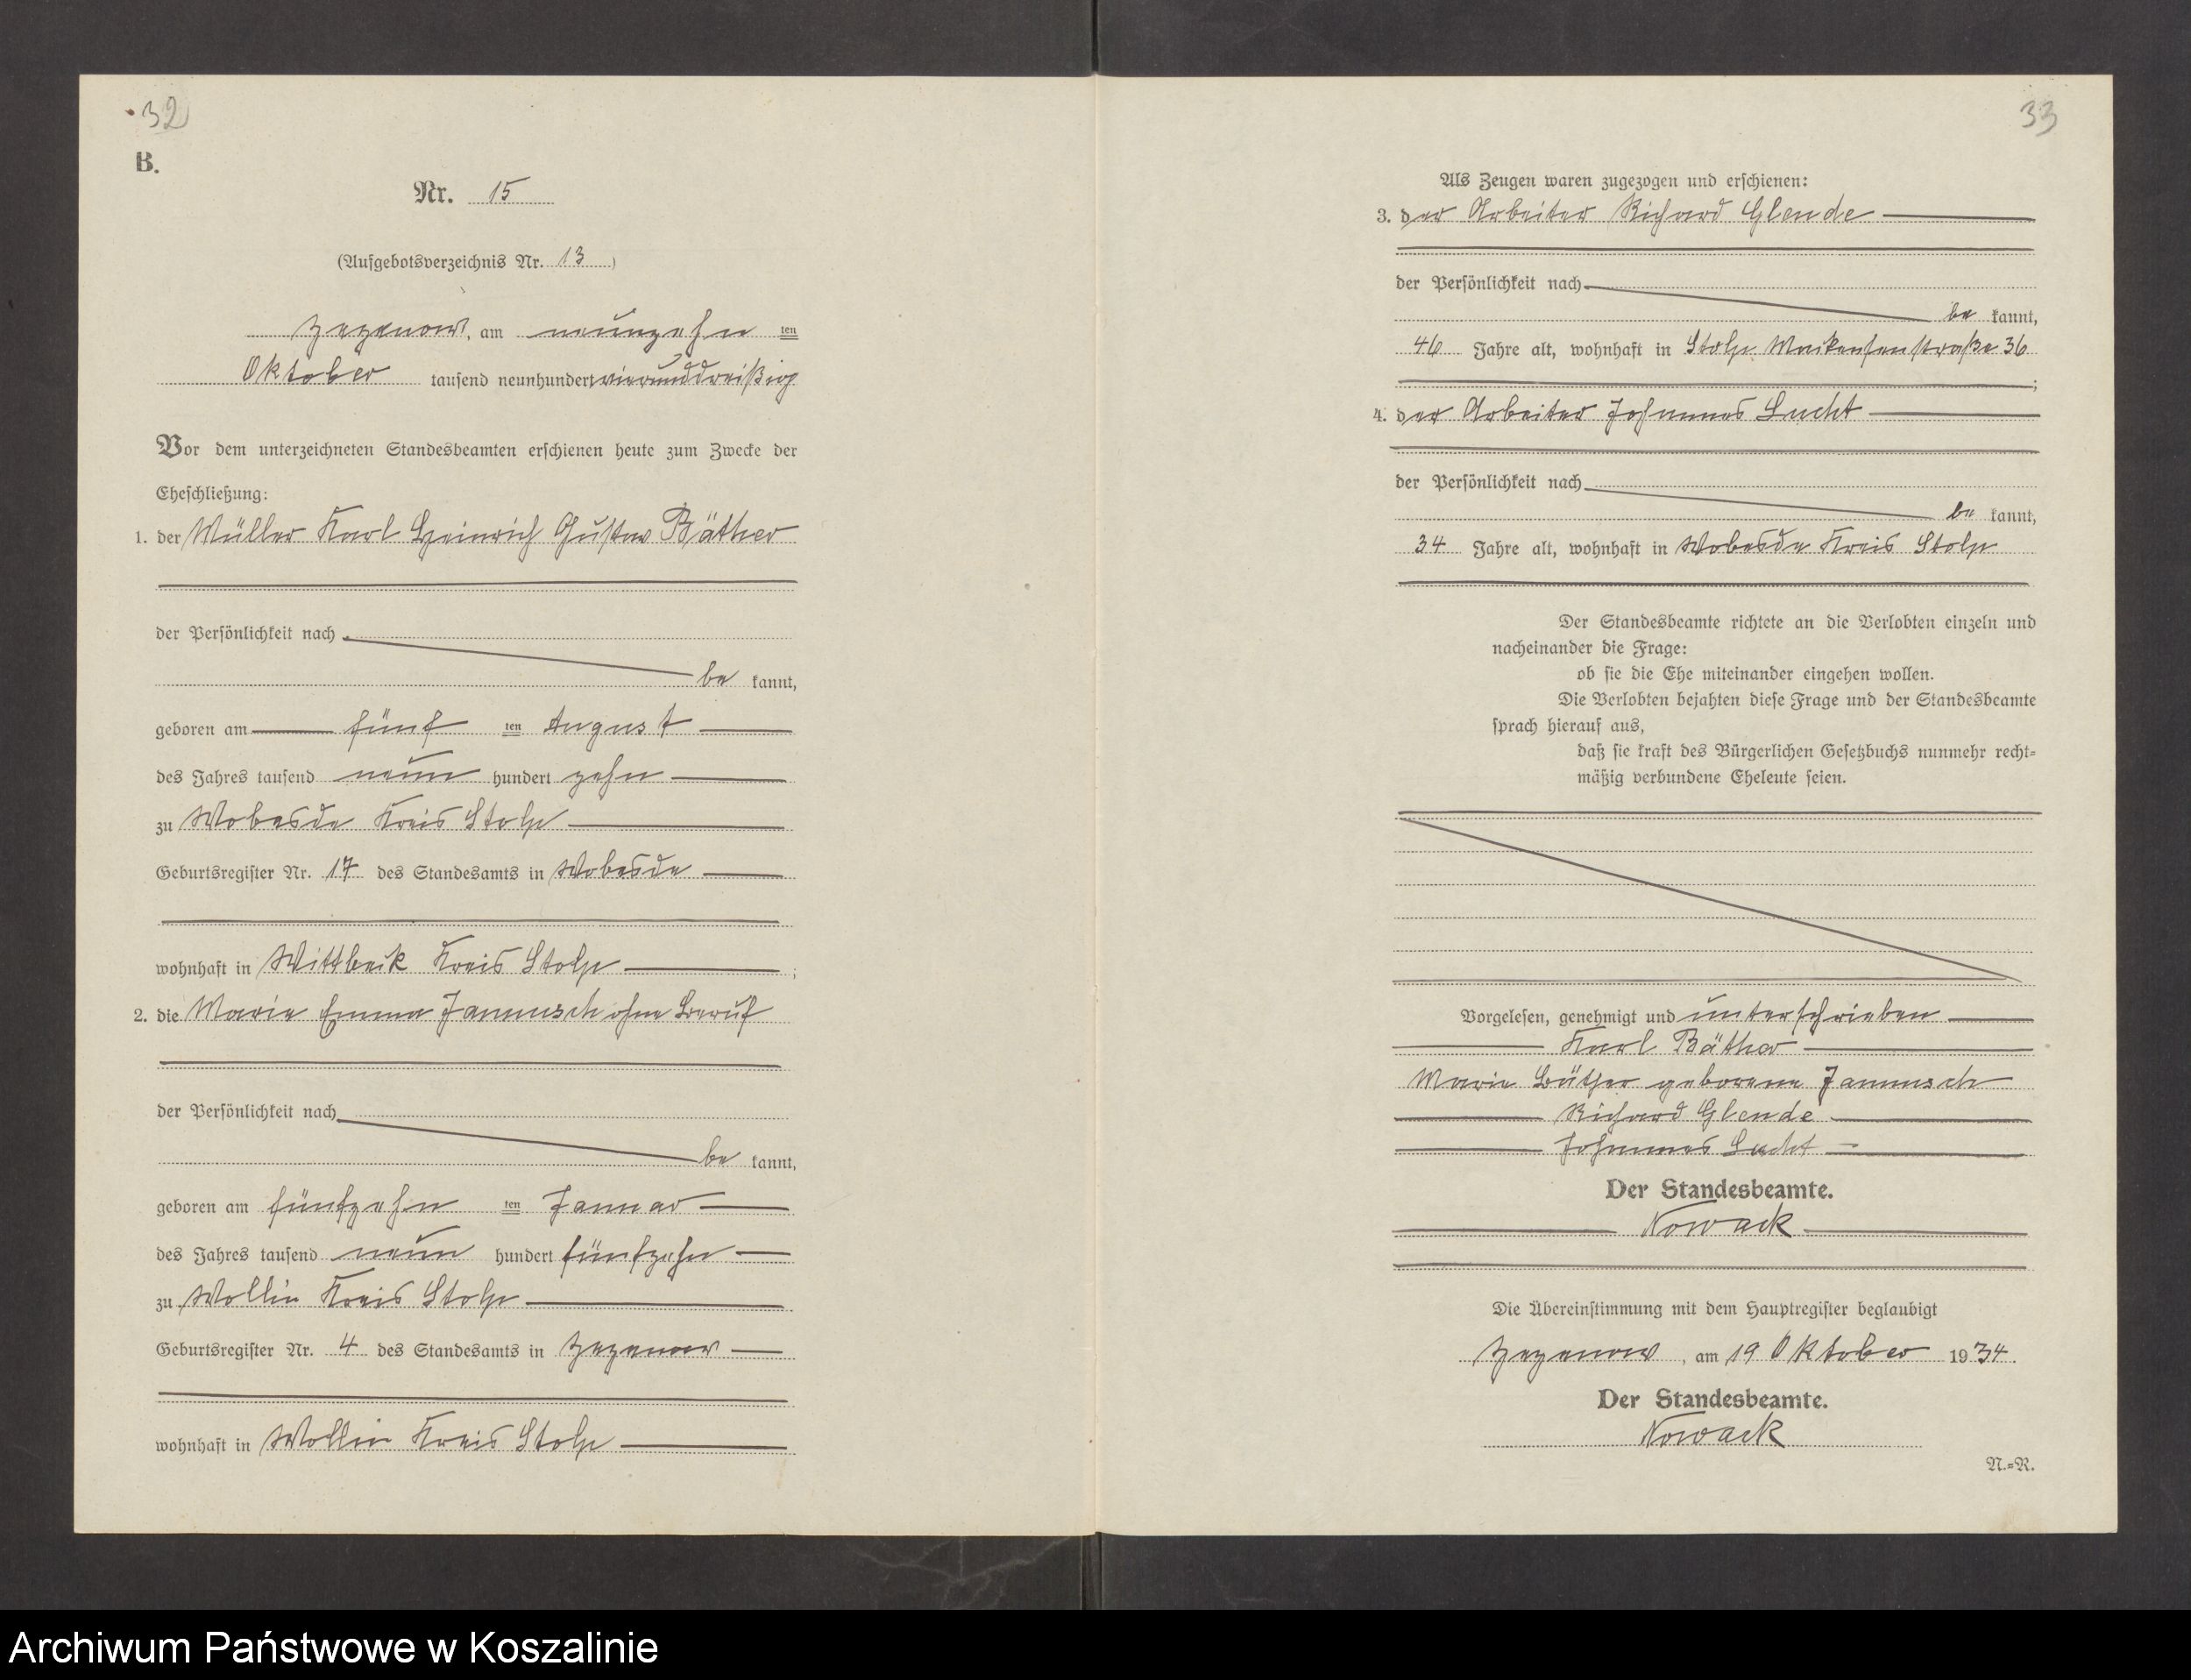 32
B.
Nr. 15
(Aufgebotsverzeichnis Nr. 13)
Zezenow, am neunzehn ten
Oktober tausend neunhundert vierunddreißig
Vor dem unterzeichneten Standesbeamten erschienen heute zum Zwecke der
Eheschließung:
1. der Müller Karl Heinrich Gustav Bäther
der Persönlichkeit nach
be kannt,
geboren am fünf ten August
des Jahres tausend neun hundert zehn
zu Wobesde Kreis Stolp
Geburtsregister Nr. 17 des Standesamts in Wobesde
wohnhaft in Wittbeck Kreis Stolp;
2. die Marie Emma Jannusch ohne Beruf
der Persönlichkeit nach
be kannt,
geboren am fünfzehn ten Januar
des Jahres tausend neun hundert fünfzehn
zu Wollin Kreis Stolp
Geburtsregister Nr. 4 des Standesamts in Zezenow
wohnhaft in Wollin Kreis Stolp
33
Als Zeugen waren zugezogen und erschienen:
3. der Arbeiter Richard Glende
der Persönlichkeit nach
be kannt,
46 Jahre alt, wohnhaft in Stolp Maikensenstraße 36
;
4. der Arbeiter Johannes Lucht
der Persönlichkeit nach
be kannt,
34 Jahre alt, wohnhaft in Wobesde Kreis Stolp
Der Standesbeamte richtete an die Verlobten einzeln und
nacheinander die Frage:
ob sie die Ehe miteinander eingehen wollen.
Die Verlobten bejahten diese Frage und der Standesbeamte
sprach hierauf aus,
daß sie kraft des Bürgerlichen Gesetzbuchs nunmehr recht-
mäßig verbundene Eheleute seien.
Vorgelesen, genehmigt und unterschrieben
Karl Bäther
Marie Bäther geborene Jannusch
Richard Glende
Johannes Lucht
Der Standesbeamte.
Nowack
Die Übereinstimmung mit dem Hauptregister beglaubigt
Zezenow, am 19 Oktober 1934.
Der Standesbeamte.
Nowack
N.-R.
Archiwum Państwowe w Koszalinie